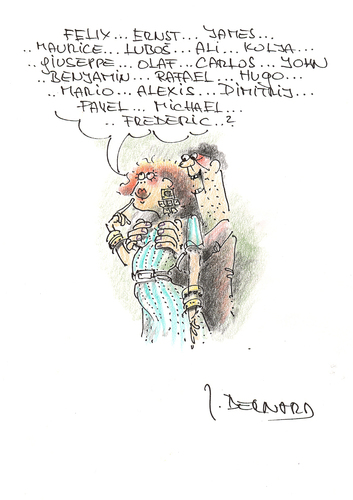 FELIX... ERNST... JAMES...
..MAURICE... LUBOŠ... ALI... KOLJA...
..GIUSEPPE... OLAF... CARLOS... JOHN
..BENYAMIN... RAFAEL... HUGO...
..MARIO... ALEXIS... DIMITRIJ...
PAVEL... MICHAEL...
..FREDERIC..?
J. BERNARD